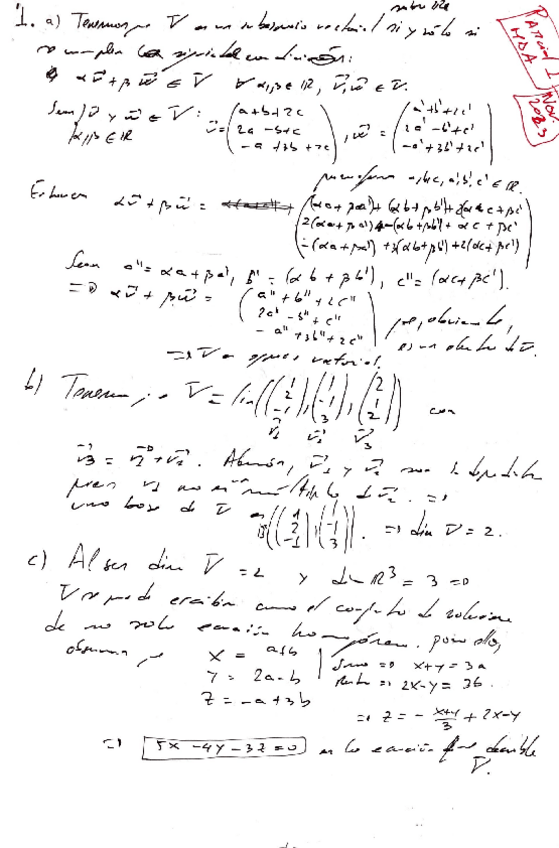 sobre ℝ
Parcial 1
MDA
Nov. 2023
1. a) Tenemos que V es un subespacio vectorial si y sólo si
se cumplen las siguientes condiciones:
α v⃗ + β w⃗ ∈ V ∀ α, β ∈ ℝ, v⃗, w⃗ ∈ V.
Sean v⃗ y w⃗ ∈ V: v⃗ = (a+b+2c, 2a-b+c, -a+3b+2c), w⃗ = (a'+b'+2c', 2a'-b'+c', -a'+3b'+2c')
α, β ∈ ℝ
para a, b, c, a', b', c' ∈ ℝ.
Entonces α v⃗ + β w⃗ = ((αa+βa')+(αb+βb')+2(αc+βc'), 2(αa+βa')-(αb+βb')+αc+βc', -(αa+βa')+3(αb+βb')+2(αc+βc'))
Sean a''=αa+βa', b''=(αb+βb'), c''=(αc+βc').
⇒ α v⃗ + β w⃗ = (a''+b''+2c'', 2a''-b''+c'', -a''+3b''+2c'') que, obviamente,
es un elemento de V.
⇒ V es espacio vectorial.
b) Tenemos que V = lin((1, 2, -1), (1, -1, 3), (2, 1, 2)) con
v⃗1 v⃗2 v⃗3
v⃗3 = v⃗1 + v⃗2. Además, v⃗1 y v⃗2 son
pues v1 no es múltiplo de v⃗2. ⇒
una base de V es B((1, 2, -1), (1, -1, 3)). ⇒ dim V = 2.
c) Al ser dim V = 2 y dim ℝ³ = 3 ⇒
V se puede escribir como el conjunto de soluciones
de una sola ecuación homogénea. para ello,
observamos que x = a+b
y = 2a-b
z = -a+3b
Sumo ⇒ x+y = 3a
⇒ 2x-y = 3b.
⇒ z = - (x+y)/3 + 2x-y
⇒ 5x - 4y - 3z = 0 es la ecuación que describe
V.